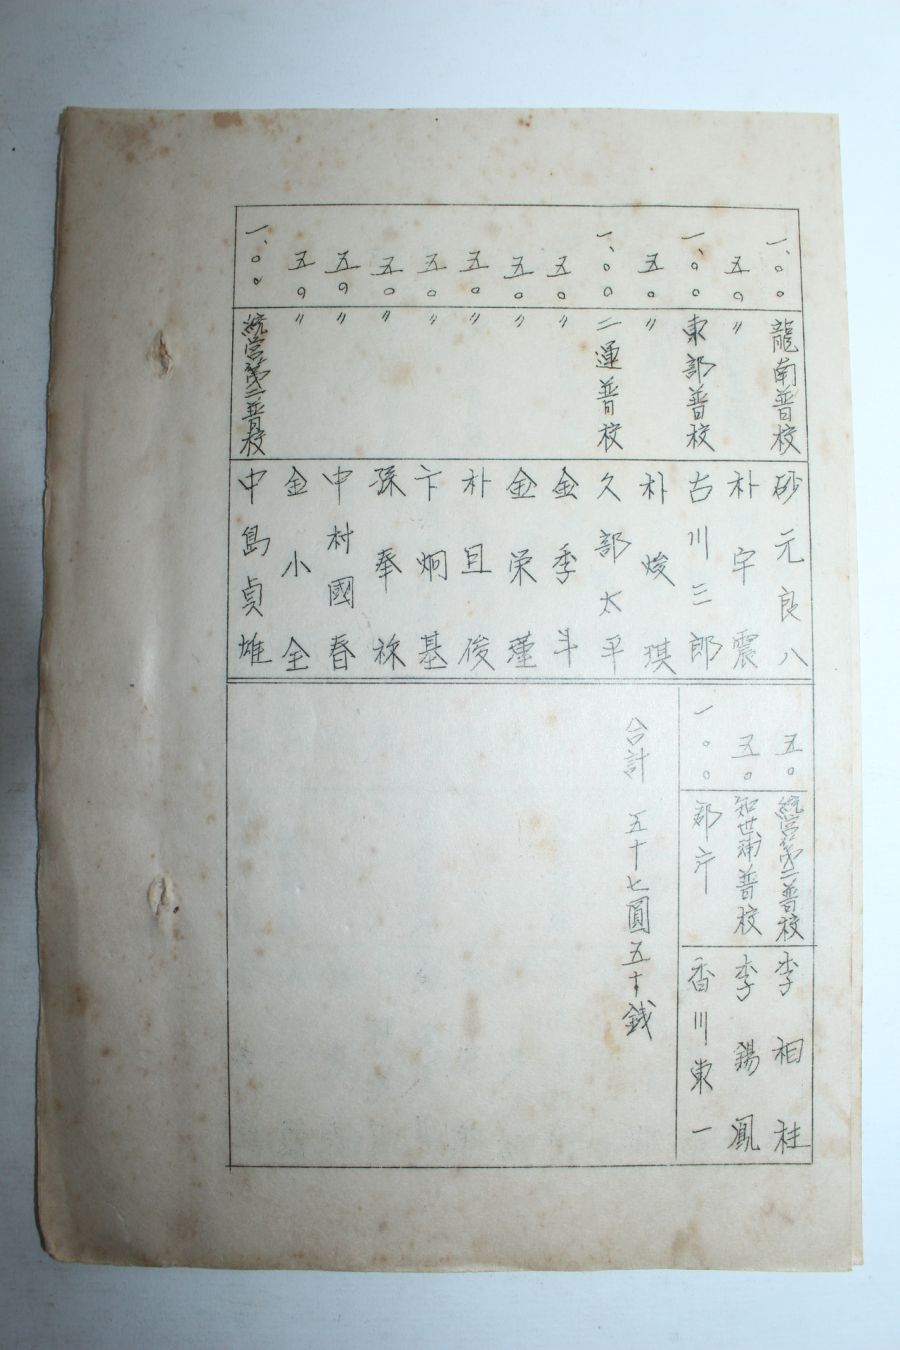 一、〇〇 龍南普校 砂元良八
五〇 〃 朴宇震
一、〇〇 東部普校 古川三郎
五〇 〃 朴焌琪
一、〇〇 二運普校 久部太平
五〇 〃 金季斗
五〇 〃 金栄瑾
五〇 〃 朴且俊
五〇 〃 卞炯基
五〇 〃 孫奉祢
五〇 〃 中村國春
五〇 〃 金小金
一、〇〇 統営第二普校 中島貞雄
五〇 統営第二普校 李相桂
五〇 知世浦普校 李錫鳳
一〇〇 郡庁 香川東一
合計 五十七圓五十銭